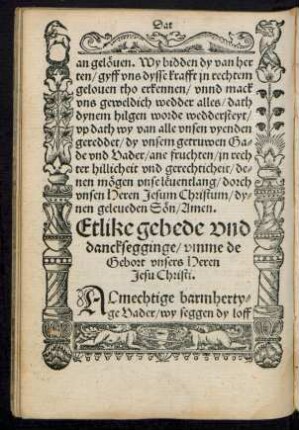 Dat
an gelöuen. Wy bidden dy van her
ten/ gyff vns dysse krafft jn rechtem
gelouen tho erkennen/ vnnd mack
vns geweldich wedder alles/ dath
dynem hilgen worde weddersteyt/
vp dath wy van alle vnsen vyenden
gereddet/ dy vnsem getruwen Ga-
de vnd Vader/ ane fruchten/ jn rech
ter hillicheit vnd gerechticheit/ de-
nen mögen vnse leuentlang/ dorch
vnsen Heren Jesum Christum/ dy-
nen geleueden Sön/ Amen.
Etlike gebede vnd
danckseggingе/ vmme de
Gebort vnsers Heren
Jesu Christi.
Almechtige barmherty-
ge Vader/ wy seggen dy loff